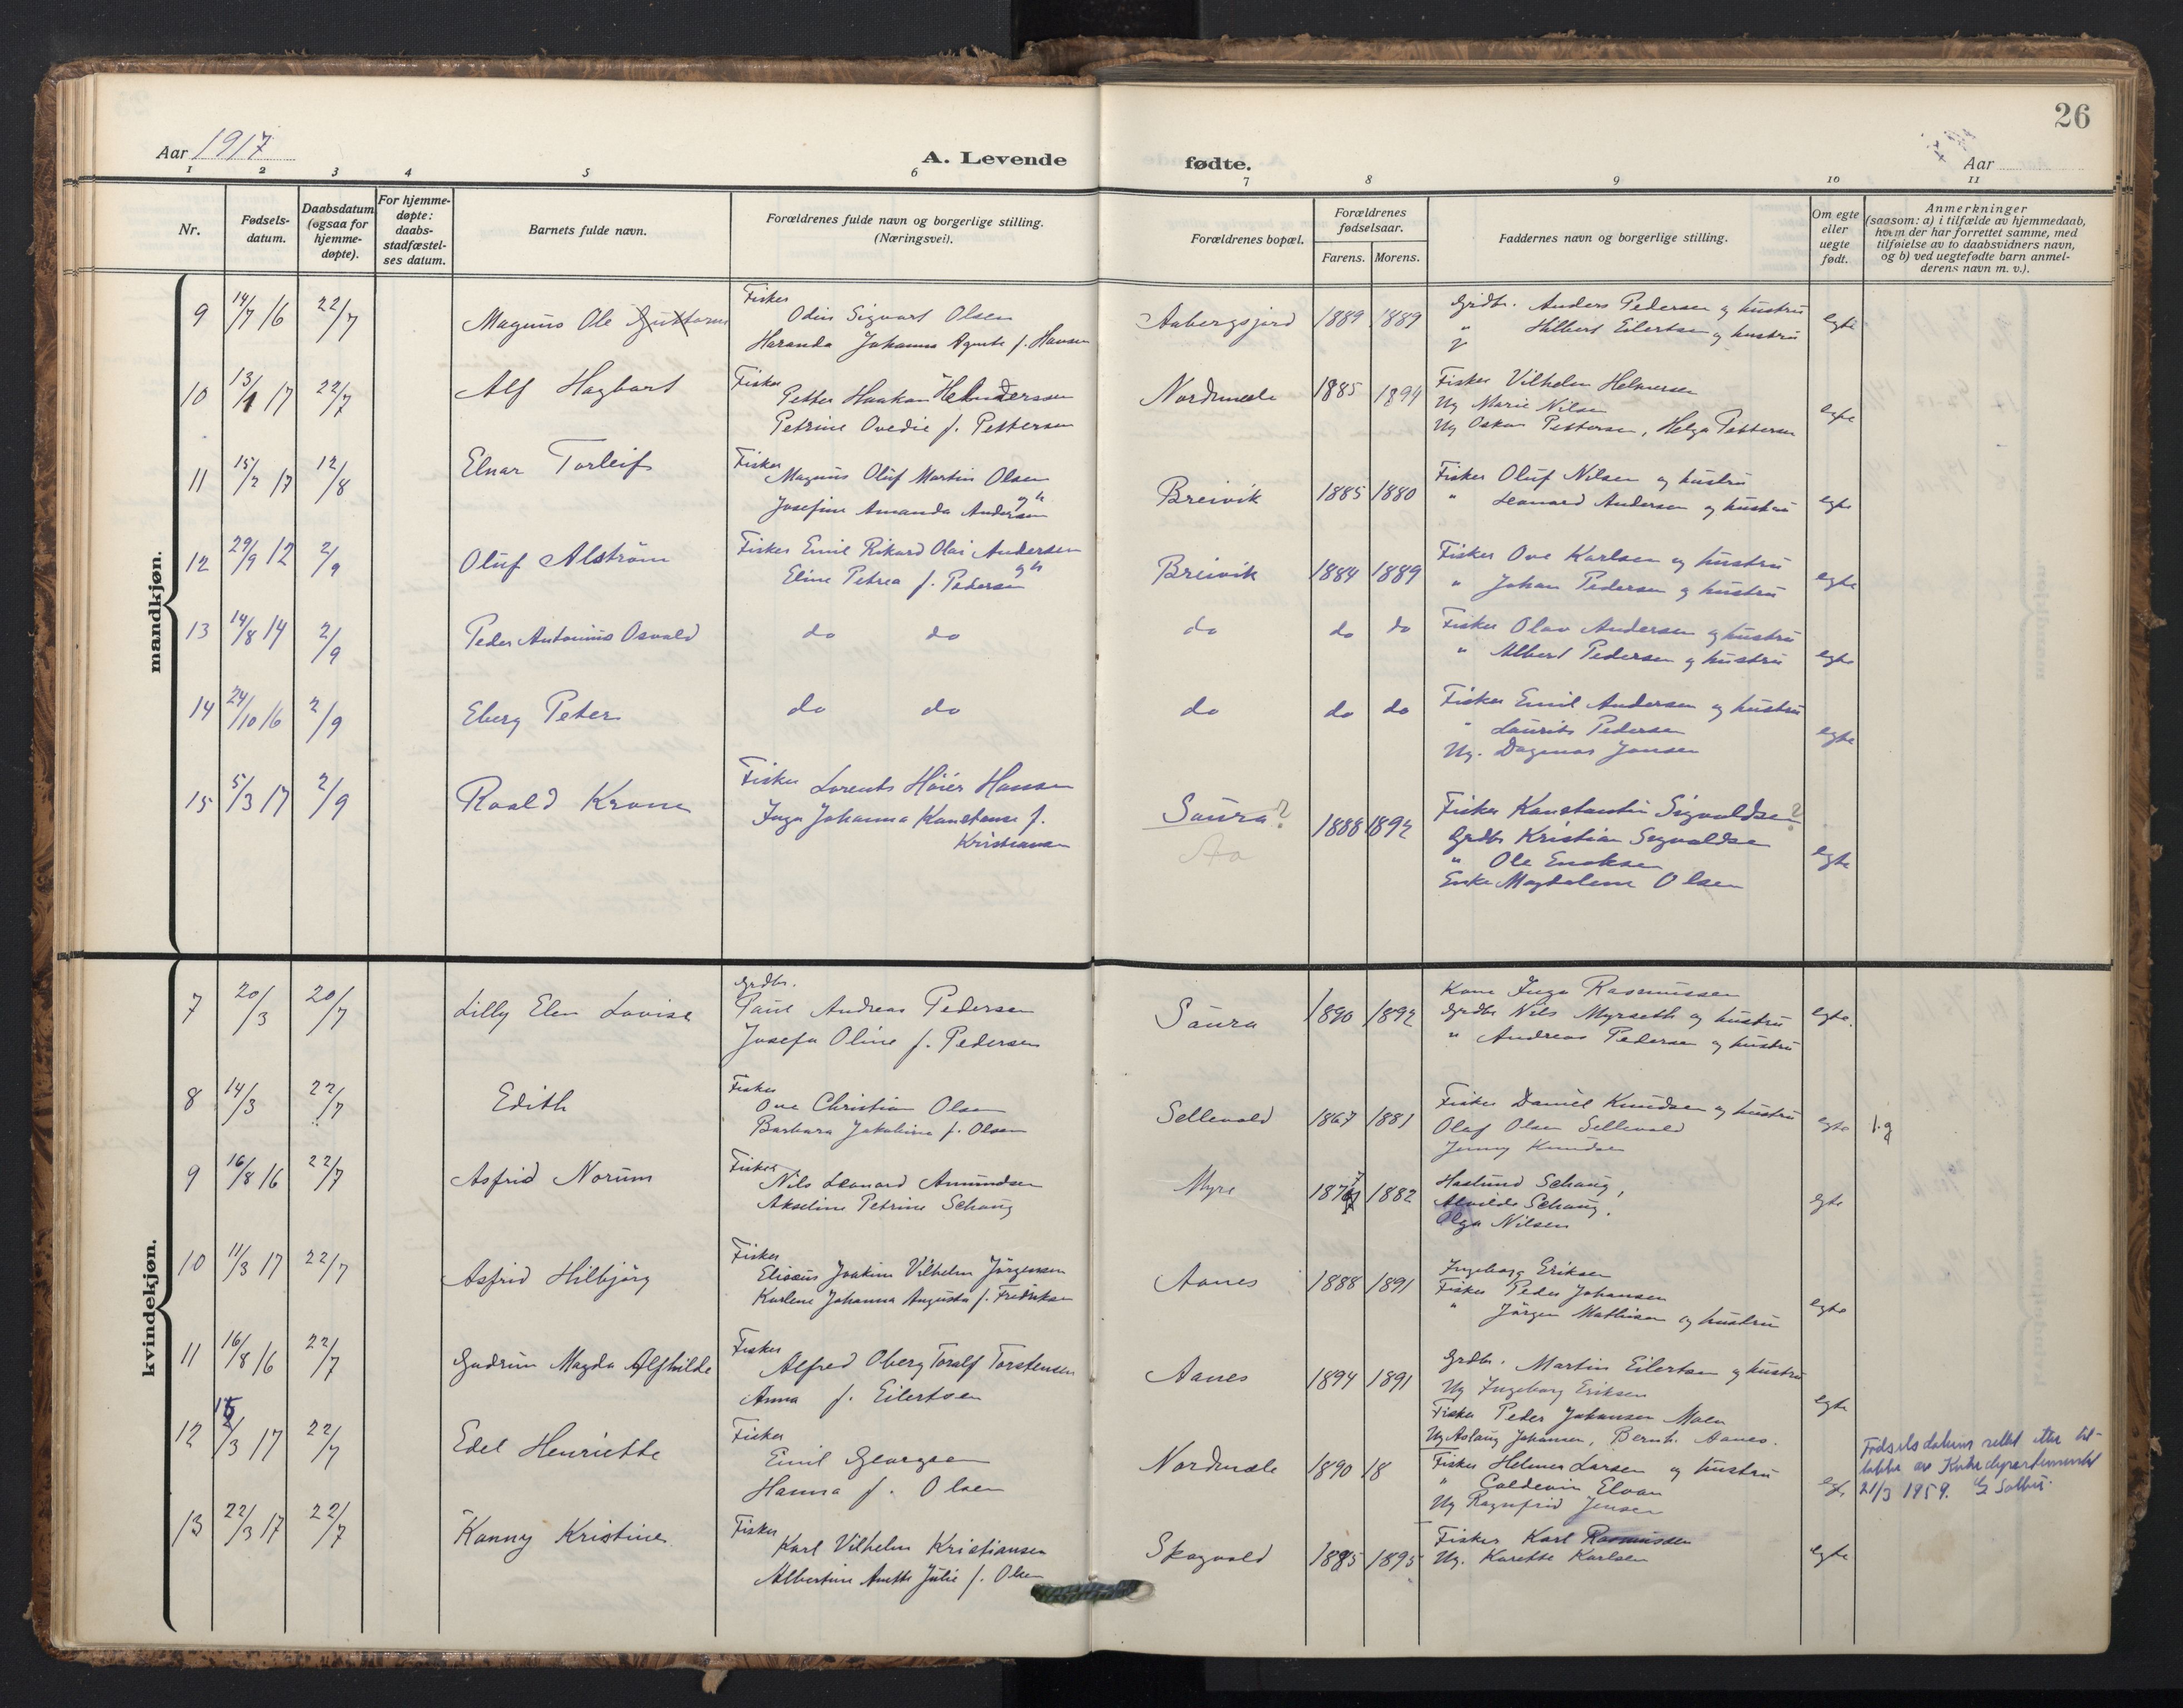 26
Aar 1917
A. Levende
fødte.
Aar
1 2 3 4 5 6 7 8 9 10 11
Nr.
Fødsels-
datum.
Daabsdatum
(ogsaa for
hjemme-
døpte).
For hjemme-
døpte:
daabs-
stadfæstel-
ses datum.
Barnets fulde navn.
Forældrenes fulde navn og borgerlige stilling.
(Næringsvei).
Forældrenes bopæl.
Forældrenes
fødselsaar.
Farens. Morens.
Faddernes navn og borgerlige stilling.
Om egte
eller
uegte
født.
Anmerkninger
(saasom: a) i tilfælde av hjemmedaab,
hvem der har forrettet samme, med
tilføielse av to daabsvidners navn,
og b) ved uegtefødte barn anmel-
derens navn m. v.).
mandkjøn.
9 14/7 16 22/7 Magnus Ole Guttorm
Fisker
Odin Sigvart Olsen
Haranda Johanna Agnete f. Hansen
Aabergsjord 1889 1889
Grdbr. Anders Pedersen og hustru
" Hilbert Eilertsen og hustru
egte
10 13/1 17 22/7 Alf Hagbart
Fisker
Petter Haakon Helmersen
Petrine Ovedie f. Pettersen
Nordmele 1885 1894
Fisker Vilhelm Helmersen
Ug Marie Nilsen
Ug Oskar Pettersen, Helga Pettersen
egte
11 15/2 17 12/8 Elnar Torleif
Fisker
Magnus Oluf Martin Olsen
Josefine Amanda Andersen
Breivik 1885 1880
Fisker Oluf Nilsen og hustru
" Leonard Andersen og hustru
egte
12 29/9 12 2/9 Oluf Alstrøm
Fisker Emil Rikard Olai Andersen
Eline Petrea f. Pedersen
Breivik 1884 1889
Fisker Ove Karlsen og hustru
" Johan Pedersen og hustru
egte
13 14/8 14 2/9 Peder Antonius Osvald
do do do do do
Fisker Olav Andersen og hustru
" Albert Pedersen og hustru
egte
14 24/10 16 2/9 Eberg Peter
do do do do do
Fisker Emil Andersen og hustru
" Laurits Pedersen
Ug. Dagmar Jensen
egte
15 5/3 17 2/9 Roald Krone
Fisker Lorents Høier Hansen
Inga Johanna Konstanse f.
Kristiansen
Saura?
Aa
1888 1892
Fisker Konstantin Sigvaldsen?
Grdbr Kristian Sigvaldsen
" Ole Enoksen
Enke Magdalene Olsen
egte
kvindekjøn.
7 20/3 20/7 Lilly Elen Lovise
Grdbr.
Paul Andreas Pedersen
Josefa Oline f. Pedersen
Saura 1890 1892
Kone Inga Rasmussen
Grdbr Nils Myrseth og hustru
" Andreas Pedersen og hustru
egte.
8 14/3 22/7 Edith
Fisker
Ove Christian Olsen
Barbara Jakobine f. Olsen
Sellevold 1867 1881
Fisker Daniel Knudsen og hustru
Olaf Olsen Sellevold
Jenny Knudsen
egte 1.g
9 16/8 16 22/7 Asfrid Norum
Fisker
Nils Leonard Amundsen
Akseline Petrine Schang
Myre 1877 1882
Haslund Schang,
Alvilde Schang.
Olga Nilsen
egte
10 11/3 17 22/7 Asfrid Hilbjørg
Fisker
Elisæus Joakim Vilhelm Jørgensen
Karlene Johanna Augusta f. Fredriksen
Aanes 1888 1891
Ingeborg Eriksen
Fisker Peder Johansen
" Jørgen Mathisen og hustru
egte
11 16/8 16 22/7 Gudrun Magda Alfhilde
Fisker
Alfred Oberg Toralf Torstensen
Anna f. Eilertsen
Aanes 1894 1891
Grdbr. Martin Eilertsen og hustru
Ug Ingeborg Eriksen
Fisker Peder Johansen Moen
Ug Aslaug Johansen, Bernh. Aanes.
egte
12 15/3 17 22/7 Edel Henriette
Fisker
Emil Georgsen
Hanna f. Olsen
Nordmele 1890 18
Fisker Helmer Larsen og hustru
" Coldevin Elvan
Ug Ragnfrid Jensen
egte
Fødselsdatum rettet etter til-
latelse av Kirkedepartementet
21/3 1959.
13 22/3 17 22/7 Kanny Kristine
Fisker
Karl Vilhelm Kristiansen
Albertine Anette Julie f. Olsen
Skogvold 1885 1895
Fisker Karl Rasmussen
Ug. Karette Karlsen
egte